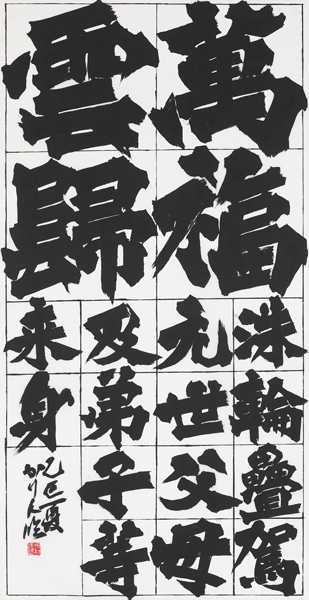 萬福
雲歸
洙輪疊駕
元世父母
及弟子等
来身
乙巳夏